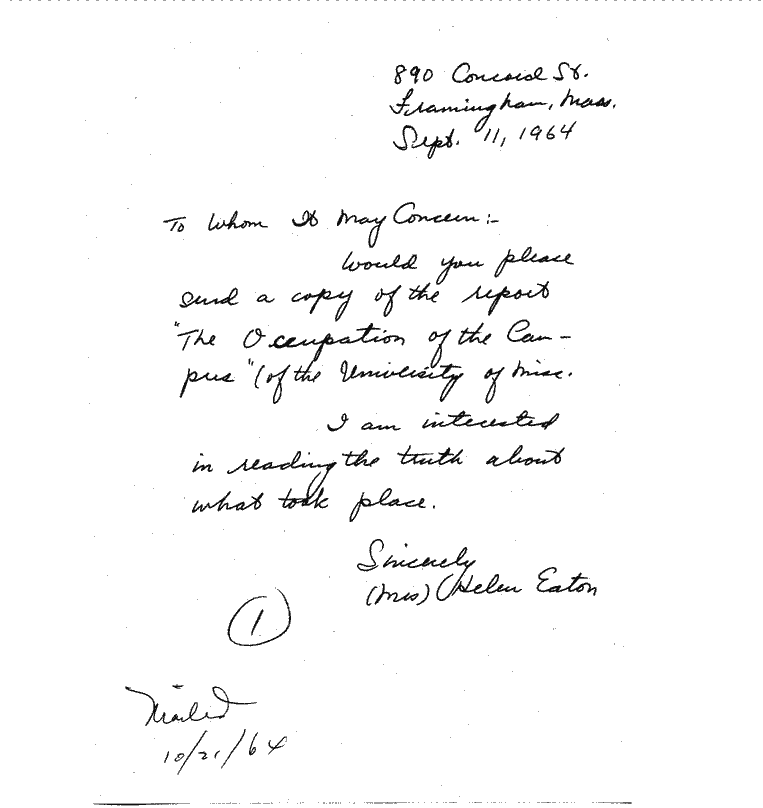 890 Concord St.
Framingham, Mass.
Sept. 11, 1964
To Whom It May Concern:-
Would you please
send a copy of the report
"The Occupation of the Cam-
pus" (of the University of Miss.
I am interested
in reading the truth about
what took place.
Sincerely
(Mrs) Helen Eaton
1
Mailed
10/21/64